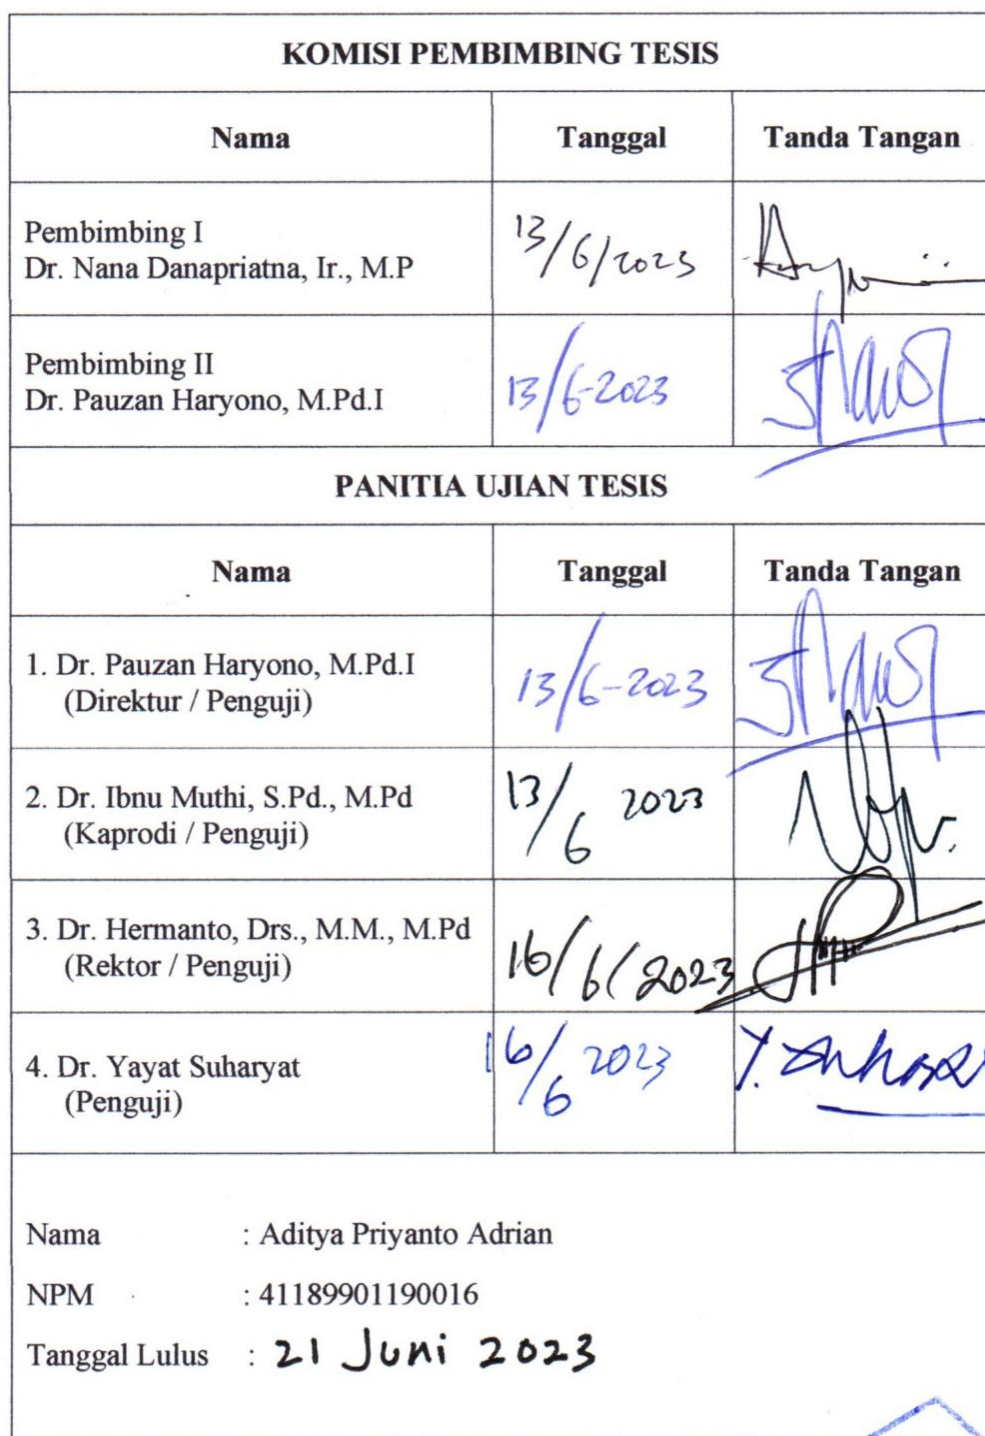 KOMISI PEMBIMBING TESIS
Nama Tanggal Tanda Tangan
Pembimbing I
Dr. Nana Danapriatna, Ir., M.P 13/6/2023
Pembimbing II
Dr. Pauzan Haryono, M.Pd.I 13/6-2023
PANITIA UJIAN TESIS
Nama Tanggal Tanda Tangan
1. Dr. Pauzan Haryono, M.Pd.I 13/6-2023
(Direktur / Penguji)
2. Dr. Ibnu Muthi, S.Pd., M.Pd 13/6 2023
(Kaprodi / Penguji)
3. Dr. Hermanto, Drs., M.M., M.Pd 16/6/2023
(Rektor / Penguji)
4. Dr. Yayat Suharyat 16/6 2023
(Penguji)
Nama : Aditya Priyanto Adrian
NPM : 41189901190016
Tanggal Lulus : 21 Juni 2023